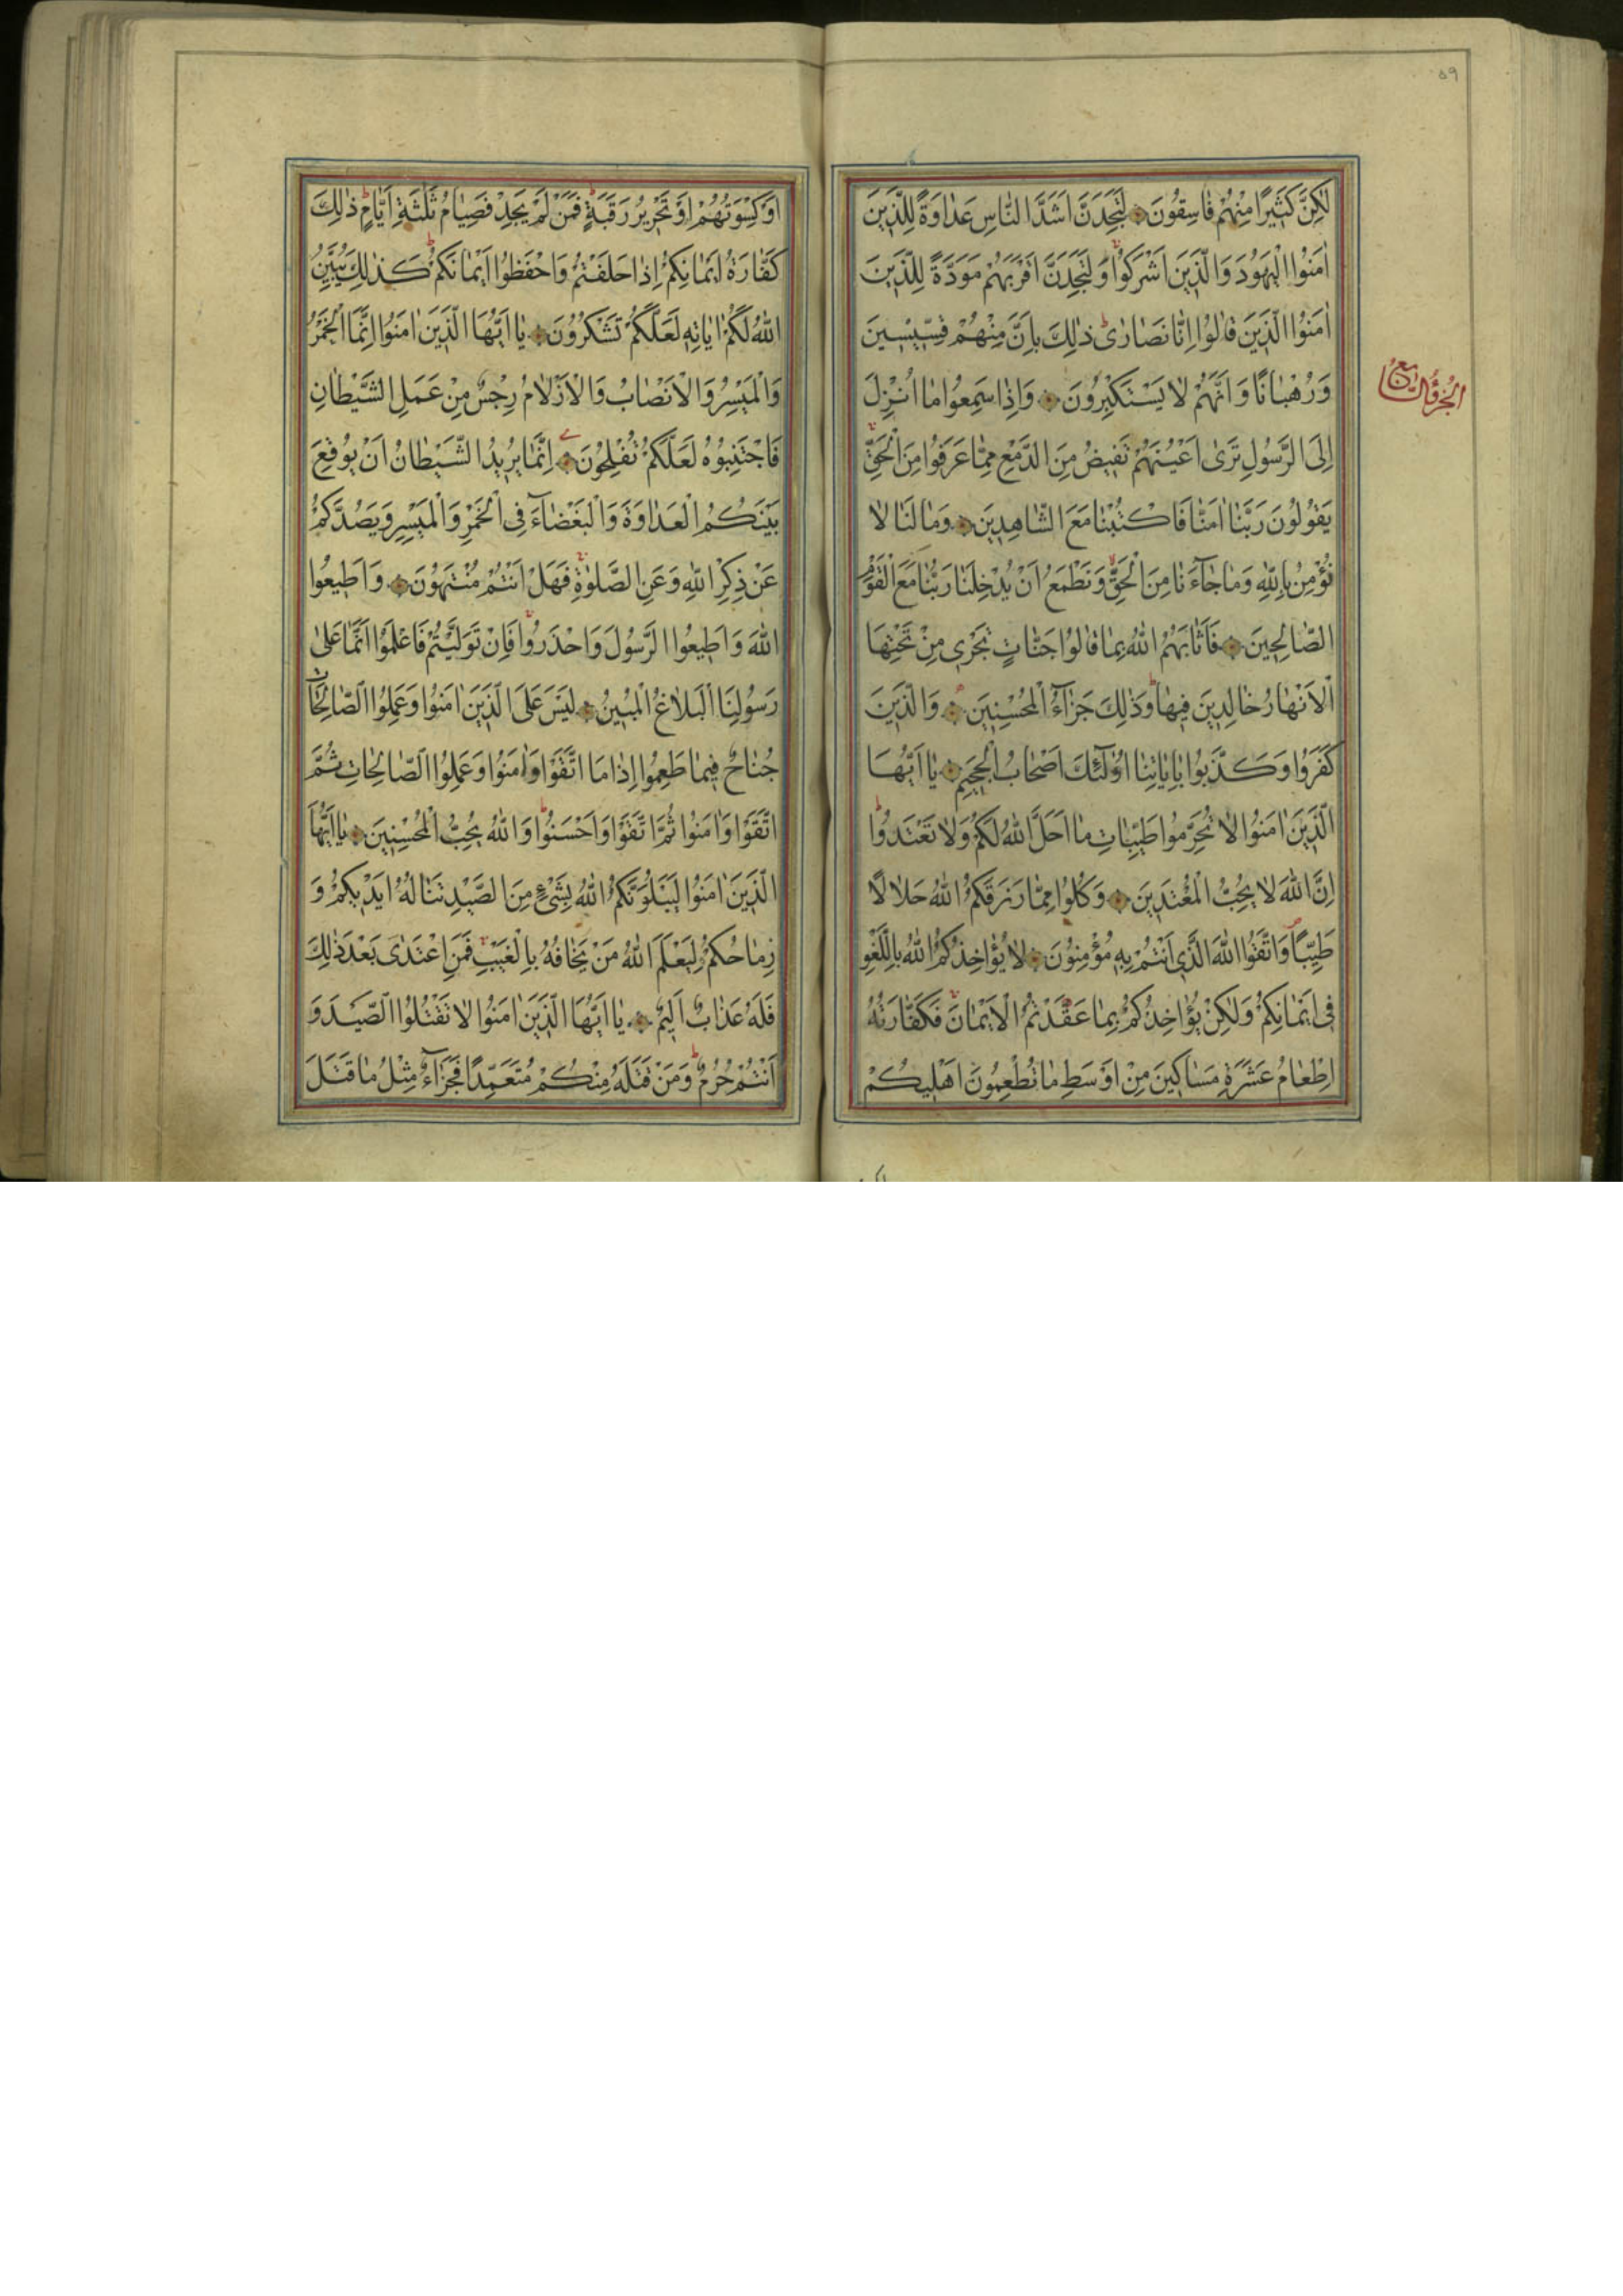 ٥٩
لٰكِنَّ كَثِيرًا مِنْهُمْ فَاسِقُونَ لَتَجِدَنَّ اَشَدَّ النَّاسِ عَدَاوَةً لِلَّذِينَ
اٰمَنُوا الْيَهُودَ وَالَّذِينَ اَشْرَكُوا وَلَتَجِدَنَّ اَقْرَبَهُمْ مَوَدَّةً لِلَّذِينَ
اٰمَنُوا الَّذِينَ قَالُوا اِنَّا نَصَارٰى ذٰلِكَ بِاَنَّ مِنْهُمْ قِسِّيسِينَ
وَرُهْبَانًا وَاَنَّهُمْ لَا يَسْتَكْبِرُونَ وَاِذَا سَمِعُوا مَا اُنْزِلَ
اِلَى الرَّسُولِ تَرٰى اَعْيُنَهُمْ تَفِيضُ مِنَ الدَّمْعِ مِمَّا عَرَفُوا مِنَ الْحَقِّ
يَقُولُونَ رَبَّنَا اٰمَنَّا فَاكْتُبْنَا مَعَ الشَّاهِدِينَ وَمَا لَنَا لَا
نُؤْمِنُ بِاللّٰهِ وَمَا جَآءَنَا مِنَ الْحَقِّ وَنَطْمَعُ اَنْ يُدْخِلَنَا رَبُّنَا مَعَ الْقَوْمِ
الصَّالِحِينَ فَاَثَابَهُمُ اللّٰهُ بِمَا قَالُوا جَنَّاتٍ تَجْرِى مِنْ تَحْتِهَا
الْاَنْهَارُ خَالِدِينَ فِيهَا وَذٰلِكَ جَزَآءُ الْمُحْسِنِينَ وَالَّذِينَ
كَفَرُوا وَكَذَّبُوا بِاٰيَاتِنَا اُولٰٓئِكَ اَصْحَابُ الْجَحِيمِ يَا اَيُّهَا
الَّذِينَ اٰمَنُوا لَا تُحَرِّمُوا طَيِّبَاتِ مَا اَحَلَّ اللّٰهُ لَكُمْ وَلَا تَعْتَدُوا
اِنَّ اللّٰهَ لَا يُحِبُّ الْمُعْتَدِينَ وَكُلُوا مِمَّا رَزَقَكُمُ اللّٰهُ حَلَالًا
طَيِّبًا وَاتَّقُوا اللّٰهَ الَّذِى اَنْتُمْ بِهِ مُؤْمِنُونَ لَا يُؤَاخِذُكُمُ اللّٰهُ بِاللَّغْوِ
فِى اَيْمَانِكُمْ وَلٰكِنْ يُؤَاخِذُكُمْ بِمَا عَقَّدْتُمُ الْاَيْمَانَ فَكَفَّارَتُهُ
اِطْعَامُ عَشَرَةِ مَسَاكِينَ مِنْ اَوْسَطِ مَا تُطْعِمُونَ اَهْلِيكُمْ
اَوْ كِسْوَتُهُمْ اَوْ تَحْرِيرُ رَقَبَةٍ فَمَنْ لَمْ يَجِدْ فَصِيَامُ ثَلٰثَةِ اَيَّامٍ ذٰلِكَ
كَفَّارَةُ اَيْمَانِكُمْ اِذَا حَلَفْتُمْ وَاحْفَظُوا اَيْمَانَكُمْ كَذٰلِكَ يُبَيِّنُ
اللّٰهُ لَكُمْ اٰيَاتِهِ لَعَلَّكُمْ تَشْكُرُونَ يَا اَيُّهَا الَّذِينَ اٰمَنُوا اِنَّمَا الْخَمْرُ
وَالْمَيْسِرُ وَالْاَنْصَابُ وَالْاَزْلَامُ رِجْسٌ مِنْ عَمَلِ الشَّيْطَانِ
فَاجْتَنِبُوهُ لَعَلَّكُمْ تُفْلِحُونَ اِنَّمَا يُرِيدُ الشَّيْطَانُ اَنْ يُوقِعَ
بَيْنَكُمُ الْعَدَاوَةَ وَالْبَغْضَآءَ فِى الْخَمْرِ وَالْمَيْسِرِ وَيَصُدَّكُمْ
عَنْ ذِكْرِ اللّٰهِ وَعَنِ الصَّلٰوةِ فَهَلْ اَنْتُمْ مُنْتَهُونَ وَاَطِيعُوا
اللّٰهَ وَاَطِيعُوا الرَّسُولَ وَاحْذَرُوا فَاِنْ تَوَلَّيْتُمْ فَاعْلَمُوا اَنَّمَا عَلٰى
رَسُولِنَا الْبَلَاغُ الْمُبِينُ لَيْسَ عَلَى الَّذِينَ اٰمَنُوا وَعَمِلُوا الصَّالِحَاتِ
جُنَاحٌ فِيمَا طَعِمُوا اِذَا مَا اتَّقَوْا وَاٰمَنُوا وَعَمِلُوا الصَّالِحَاتِ ثُمَّ
اتَّقَوْا وَاٰمَنُوا ثُمَّ اتَّقَوْا وَاَحْسَنُوا وَاللّٰهُ يُحِبُّ الْمُحْسِنِينَ يَا اَيُّهَا
الَّذِينَ اٰمَنُوا لَيَبْلُوَنَّكُمُ اللّٰهُ بِشَىْءٍ مِنَ الصَّيْدِ تَنَالُهُ اَيْدِيكُمْ وَ
رِمَاحُكُمْ لِيَعْلَمَ اللّٰهُ مَنْ يَخَافُهُ بِالْغَيْبِ فَمَنِ اعْتَدٰى بَعْدَ ذٰلِكَ
فَلَهُ عَذَابٌ اَلِيمٌ يَا اَيُّهَا الَّذِينَ اٰمَنُوا لَا تَقْتُلُوا الصَّيْدَ وَ
اَنْتُمْ حُرُمٌ وَمَنْ قَتَلَهُ مِنْكُمْ مُتَعَمِّدًا فَجَزَآءٌ مِثْلُ مَا قَتَلَ